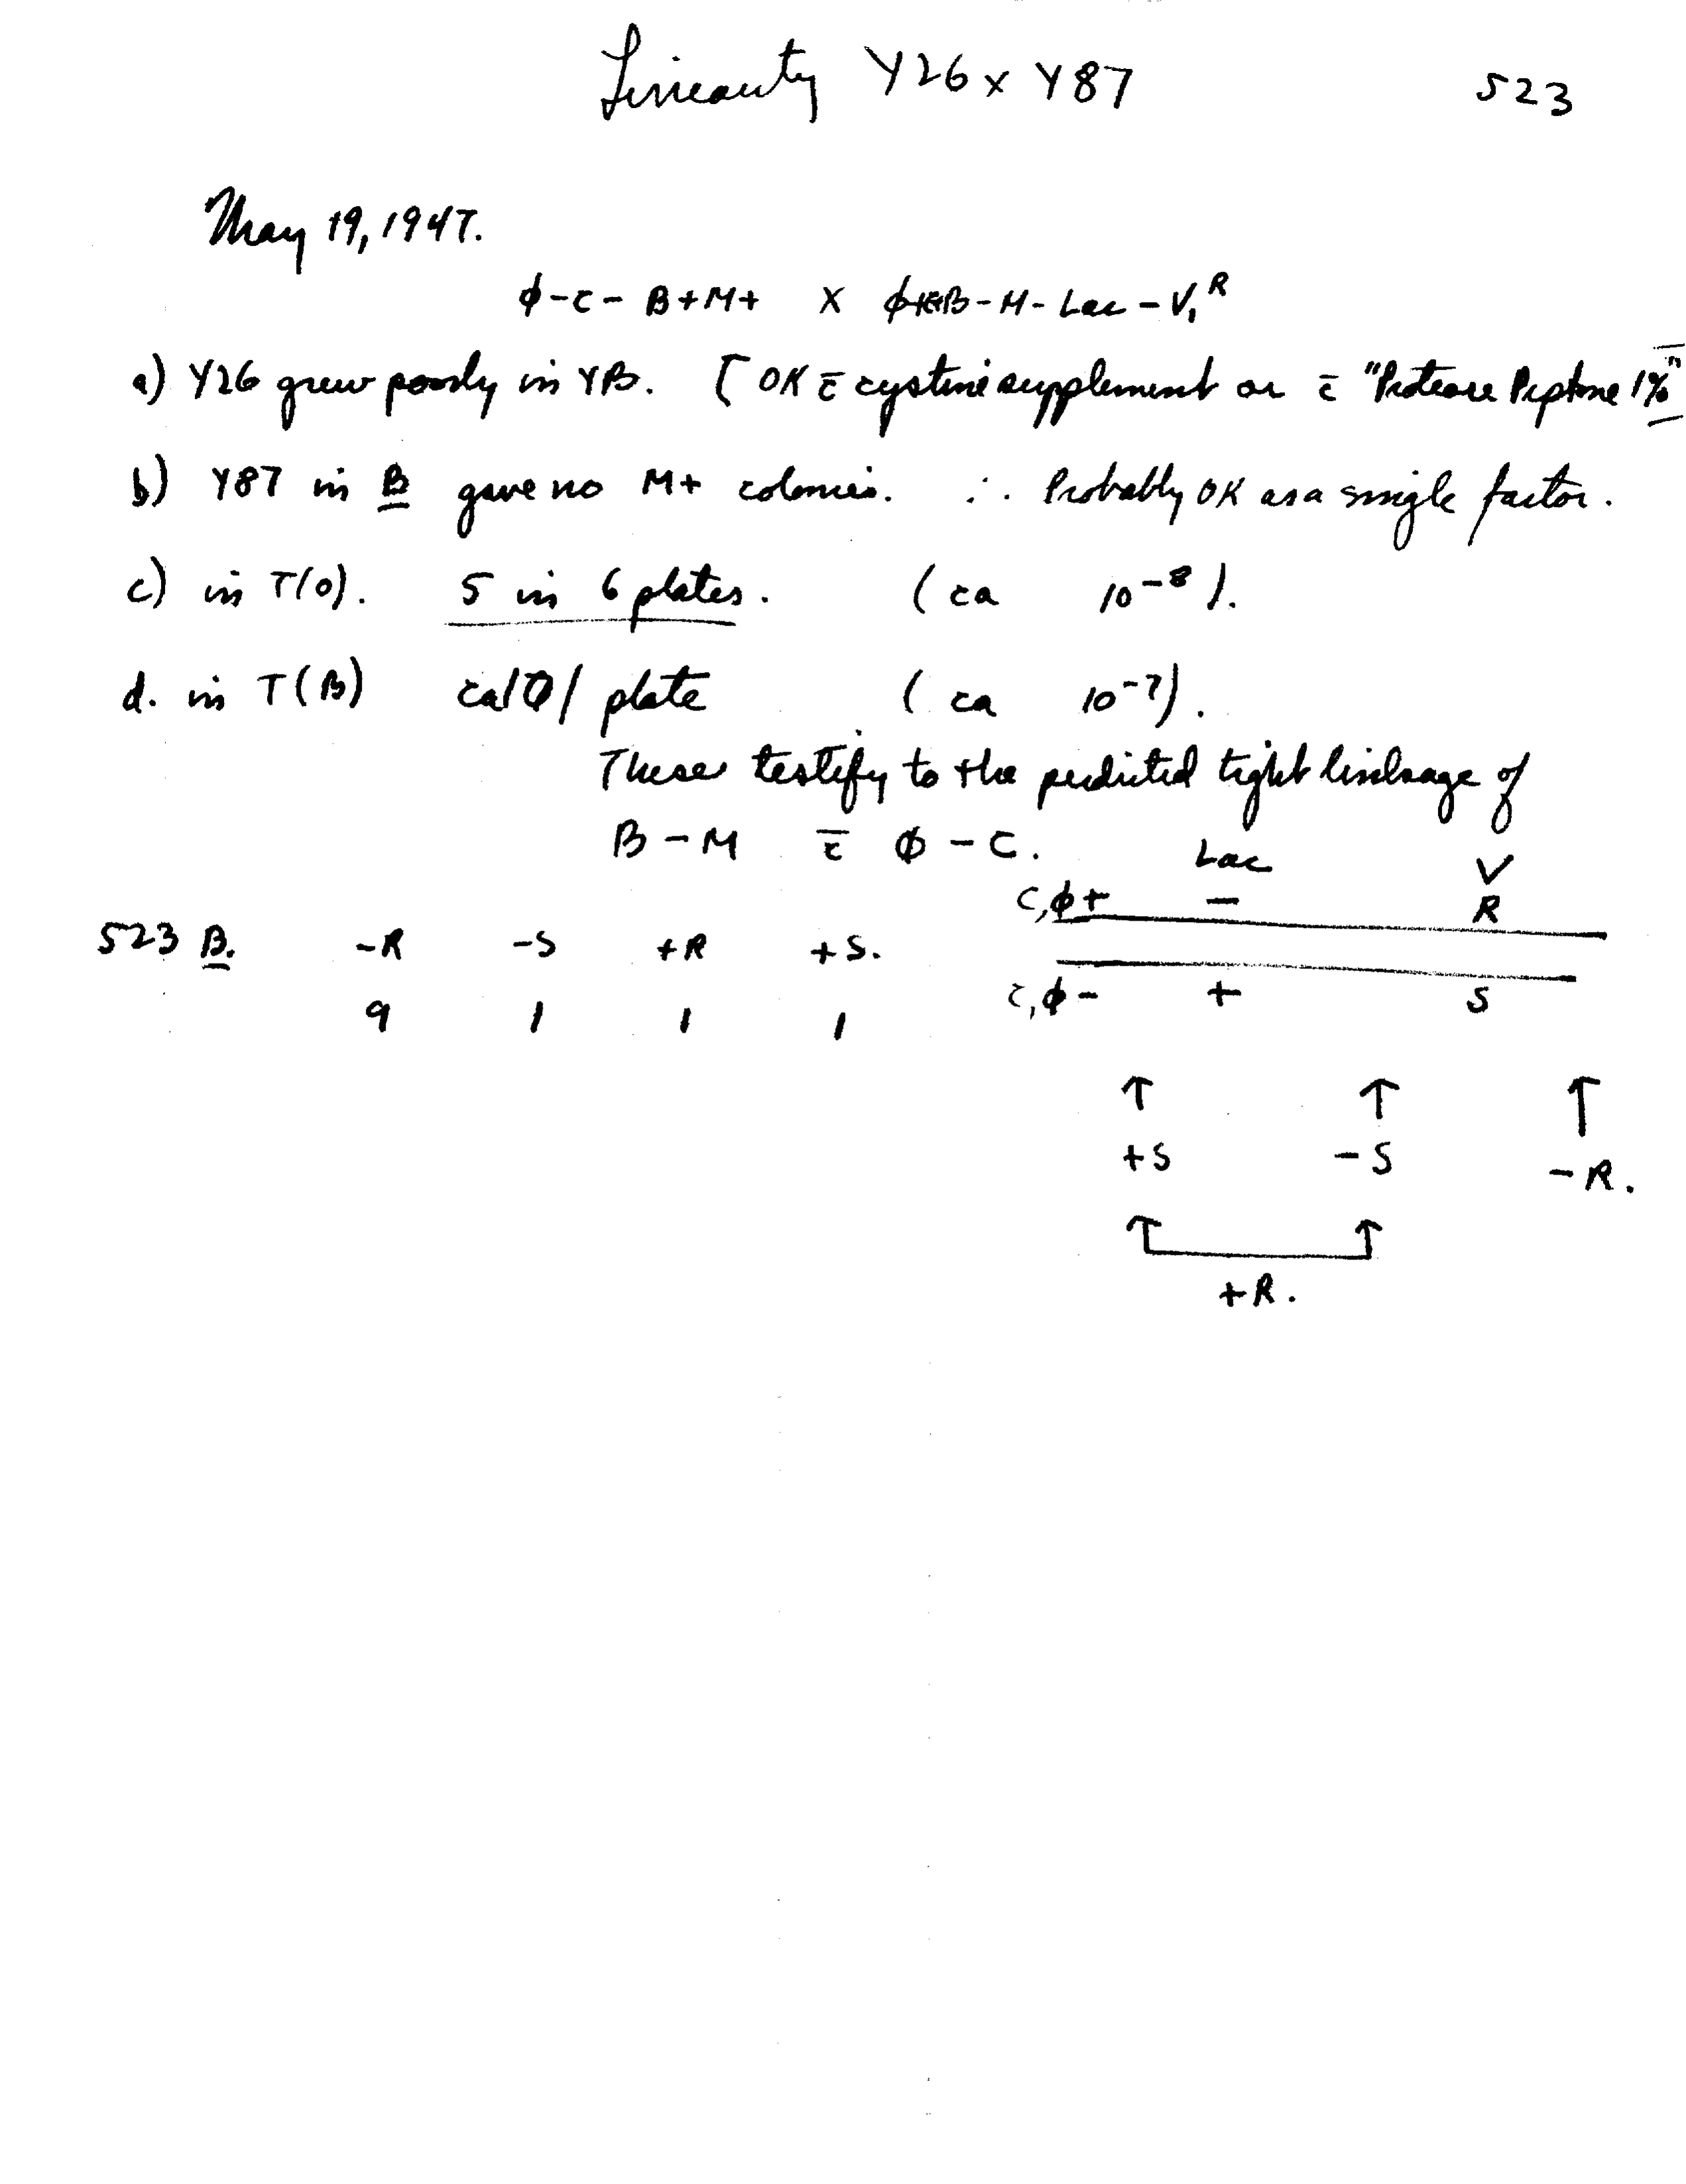 Linearity Y26 x Y87 523
May 19, 1947.
ϕ-C- B+M+ x B-M-Lac-V₁ᴿ
a) Y26 grew poorly in YB. [ OK c̄ cystine supplement or c̄ "Proteose Peptone 1%"
b) Y87 in B gave no M+ colonies. ∴ Probably OK as a single factor.
c) in T(0). 5 in 6 plates. ( ca 10⁻⁸ ).
d. in T(B) ca 10/ plate ( ca 10⁻⁷).
These testify to the predicted tight linkage of
B-M c̄ ϕ-C.
Lac V
C,ϕ+ - R
523 B. -R -S +R +S.
C,ϕ- + S
9 1 1 1
↑ ↑ ↑
+S -S -R.
↑ ↑
+R.